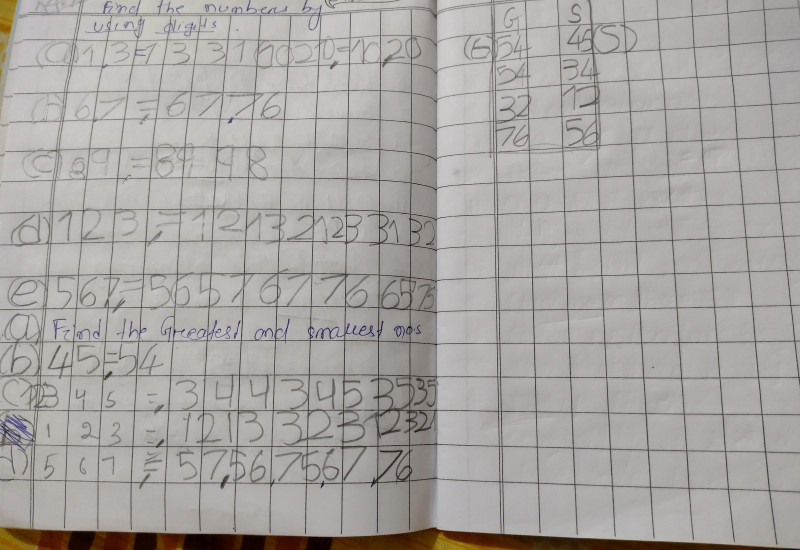 Find the numbers by
using digits.
(a) 1,3 = 13 31 1020, = 10,20
67, = 67,76
(c) 89, = 89 98
(d) 123, = 12 13 21 23 31 32
(e) 567, = 56 57 67 76 65 75
(a) Find the Greatest and smallest nos
(b) 45, = 54
3 4 5 =, 34 43 45 35 35
1 2 3 =, 12 13 32 31 23 21
5 6 7 =, 57,56,75,67,76
G S
54 45 (S)
54 34
32 12
76 56